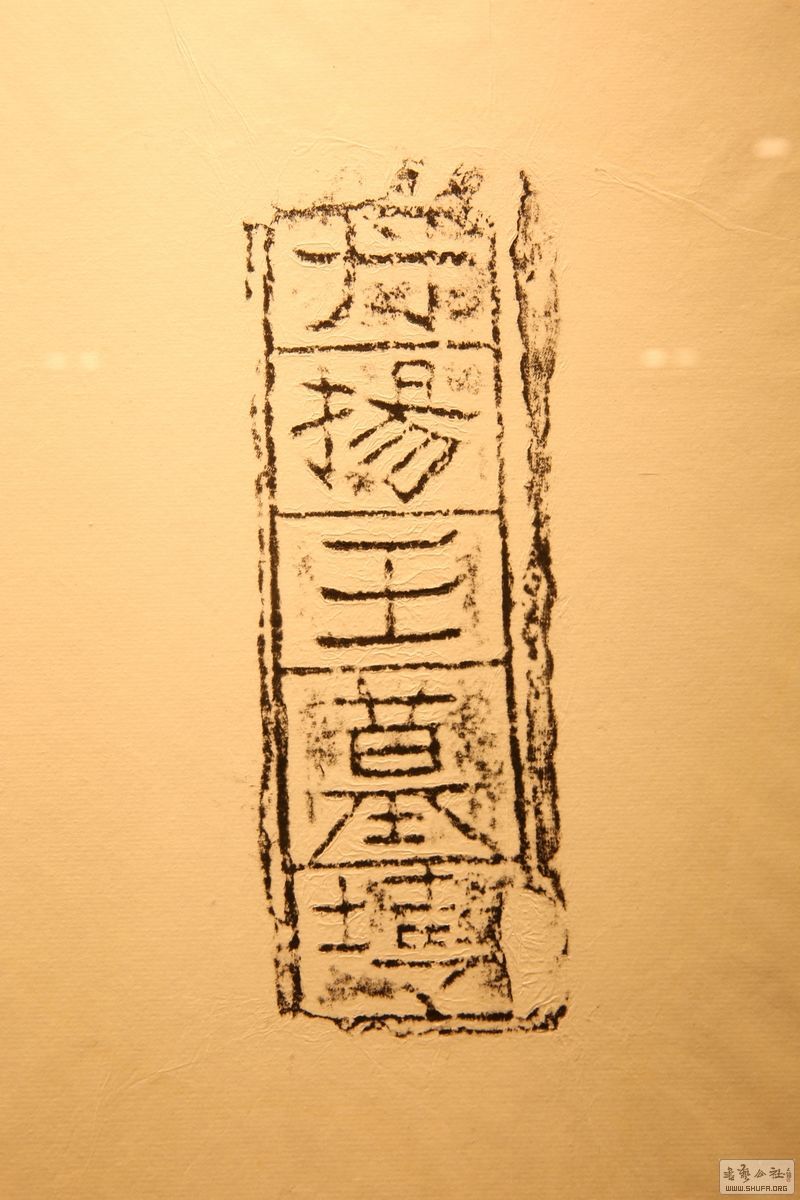 丹
揚
王
墓
塼
书藝公社
WWW.SHUFA.ORG